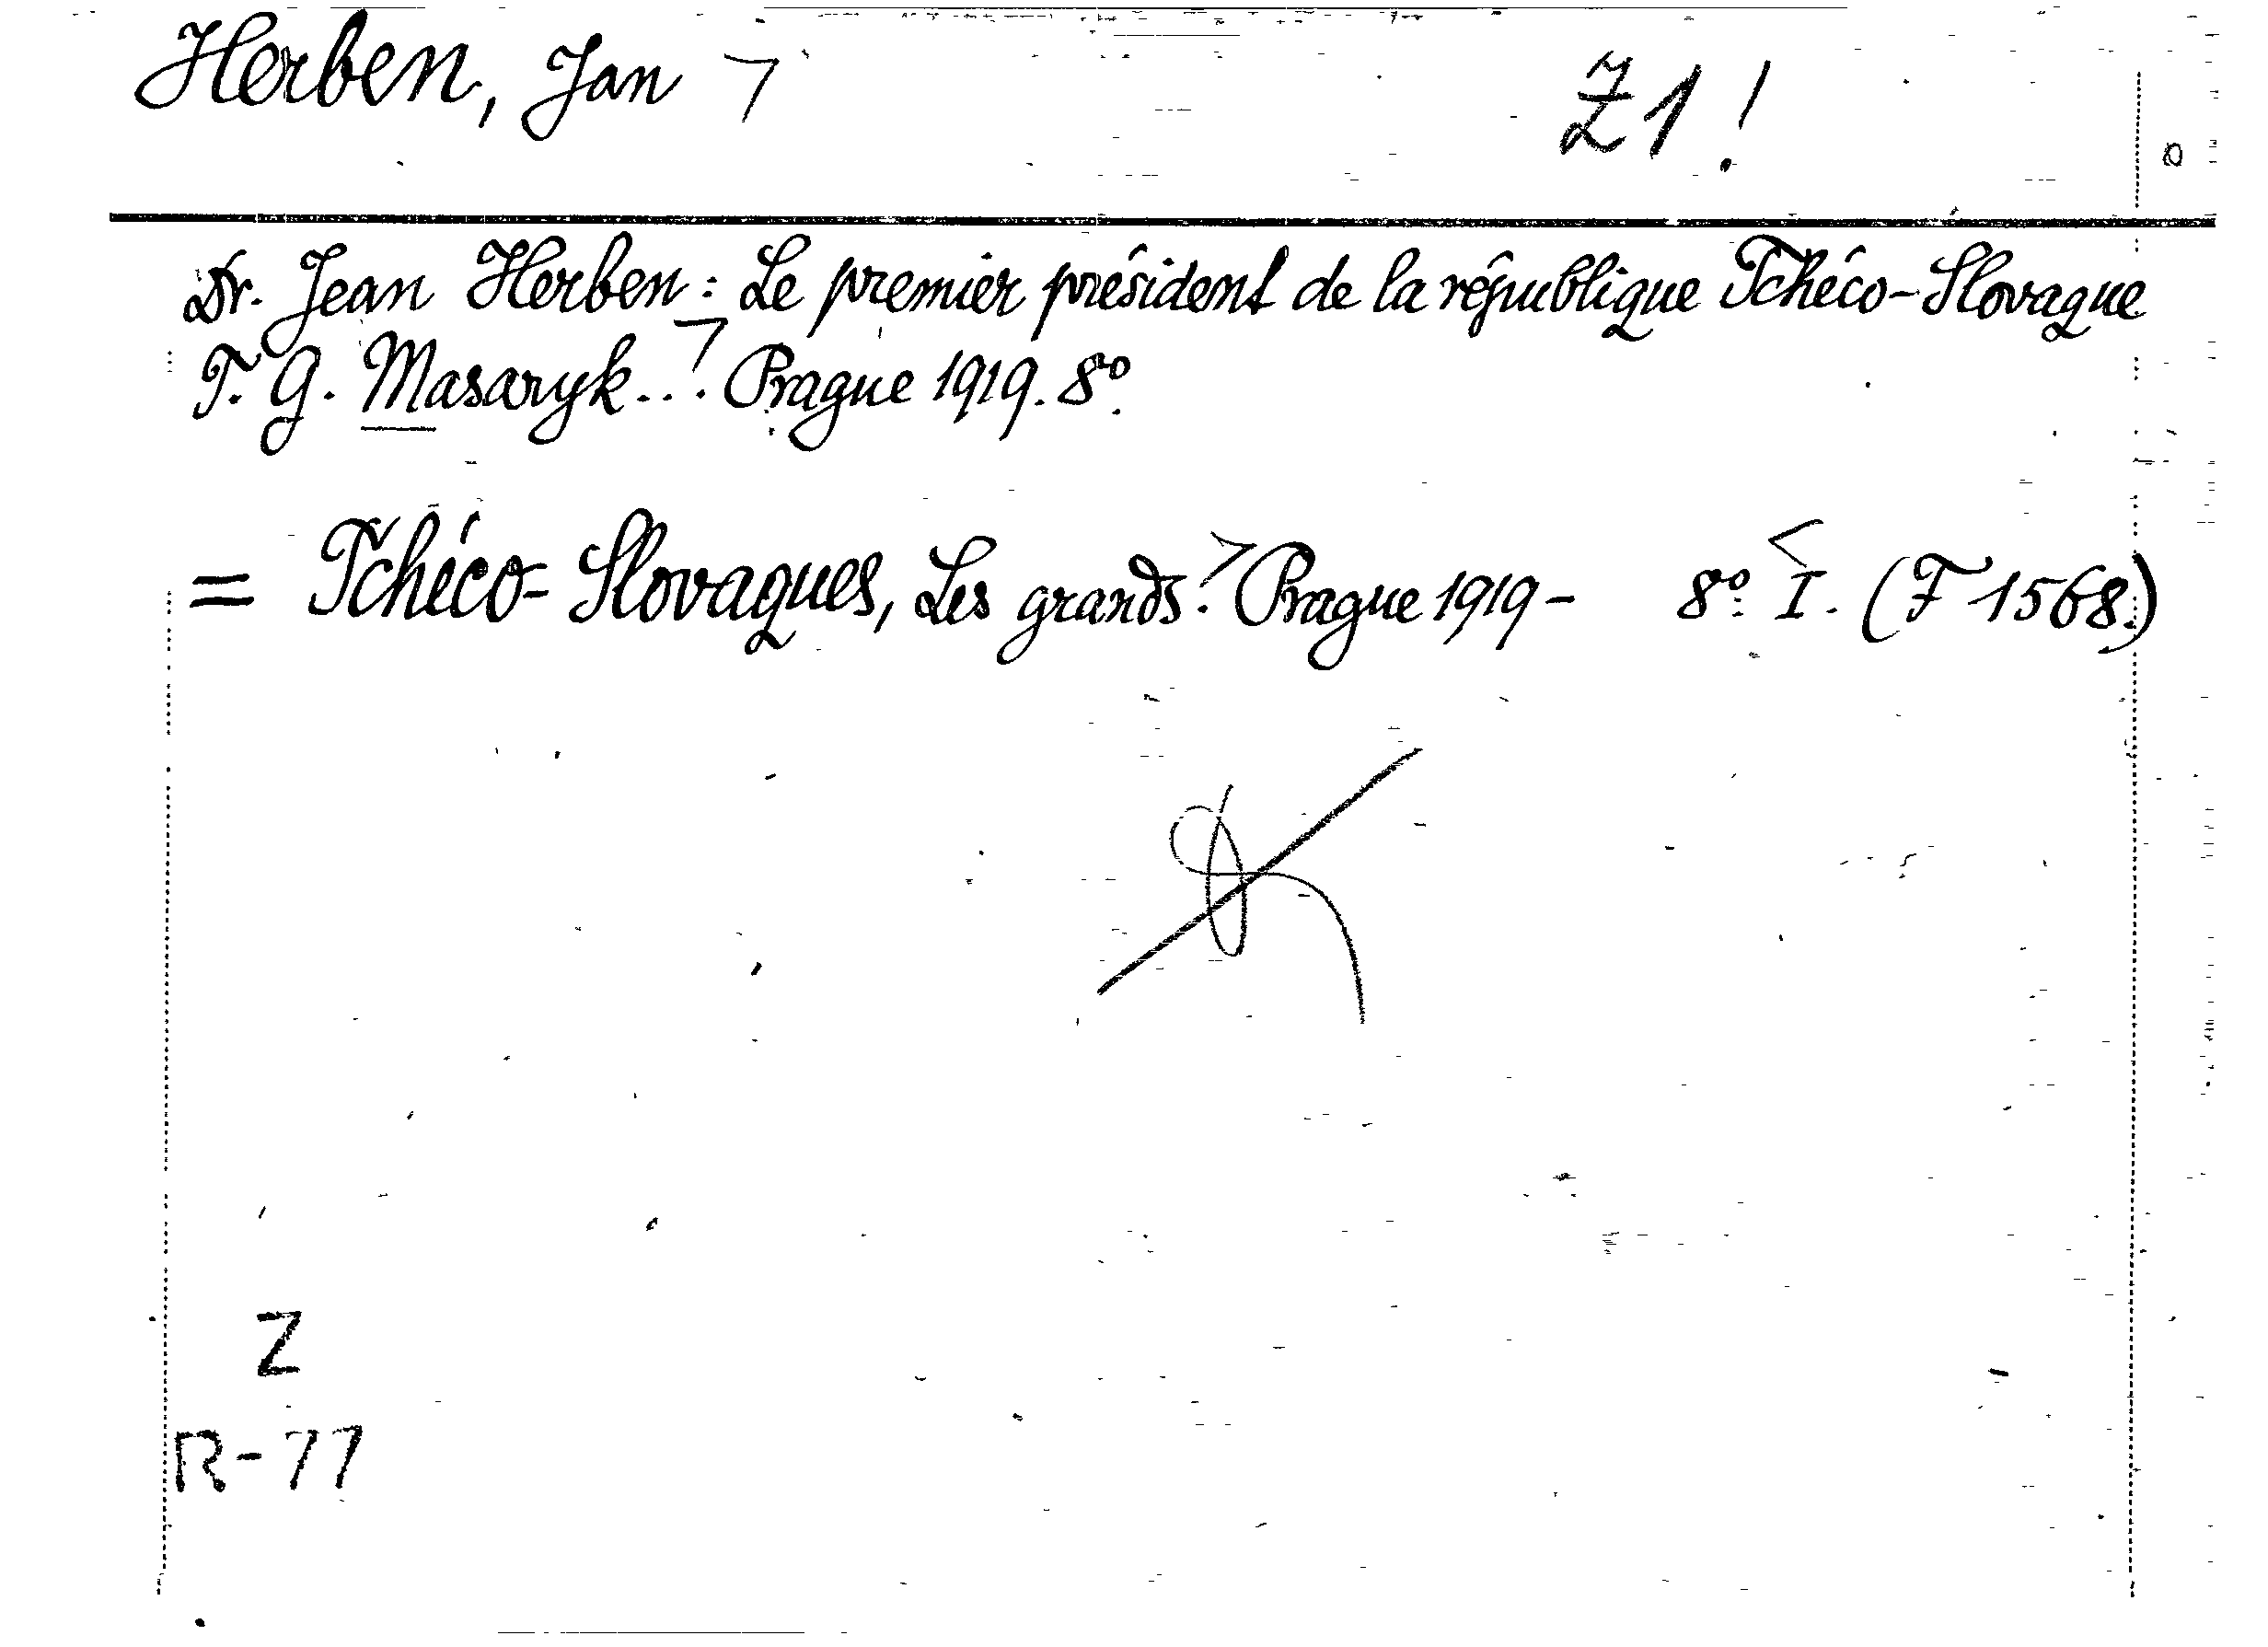 Herben, Jan ⌝ Z1!
Dr. Jean Herben: Le premier président de la république Tchéco-Slovaque
T. G. Masaryk... Prague 1919. 8º.
= Tchéco-Slovaques, Les grands. Prague 1919- 8º. I. (F 1568.)
Z
R-77